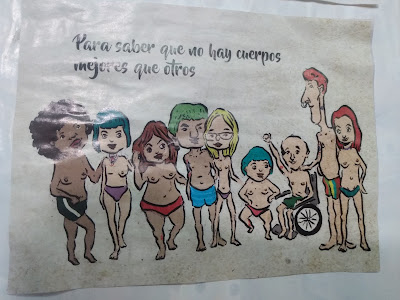 Para saber que no hay cuerpos
mejores que otros